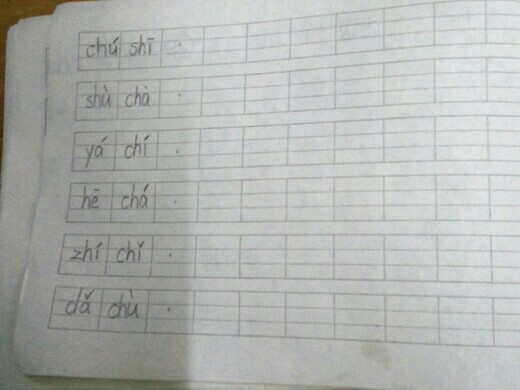 chú shī
shù chà
yá chí
hē chá
zhí chǐ
dǎ chù